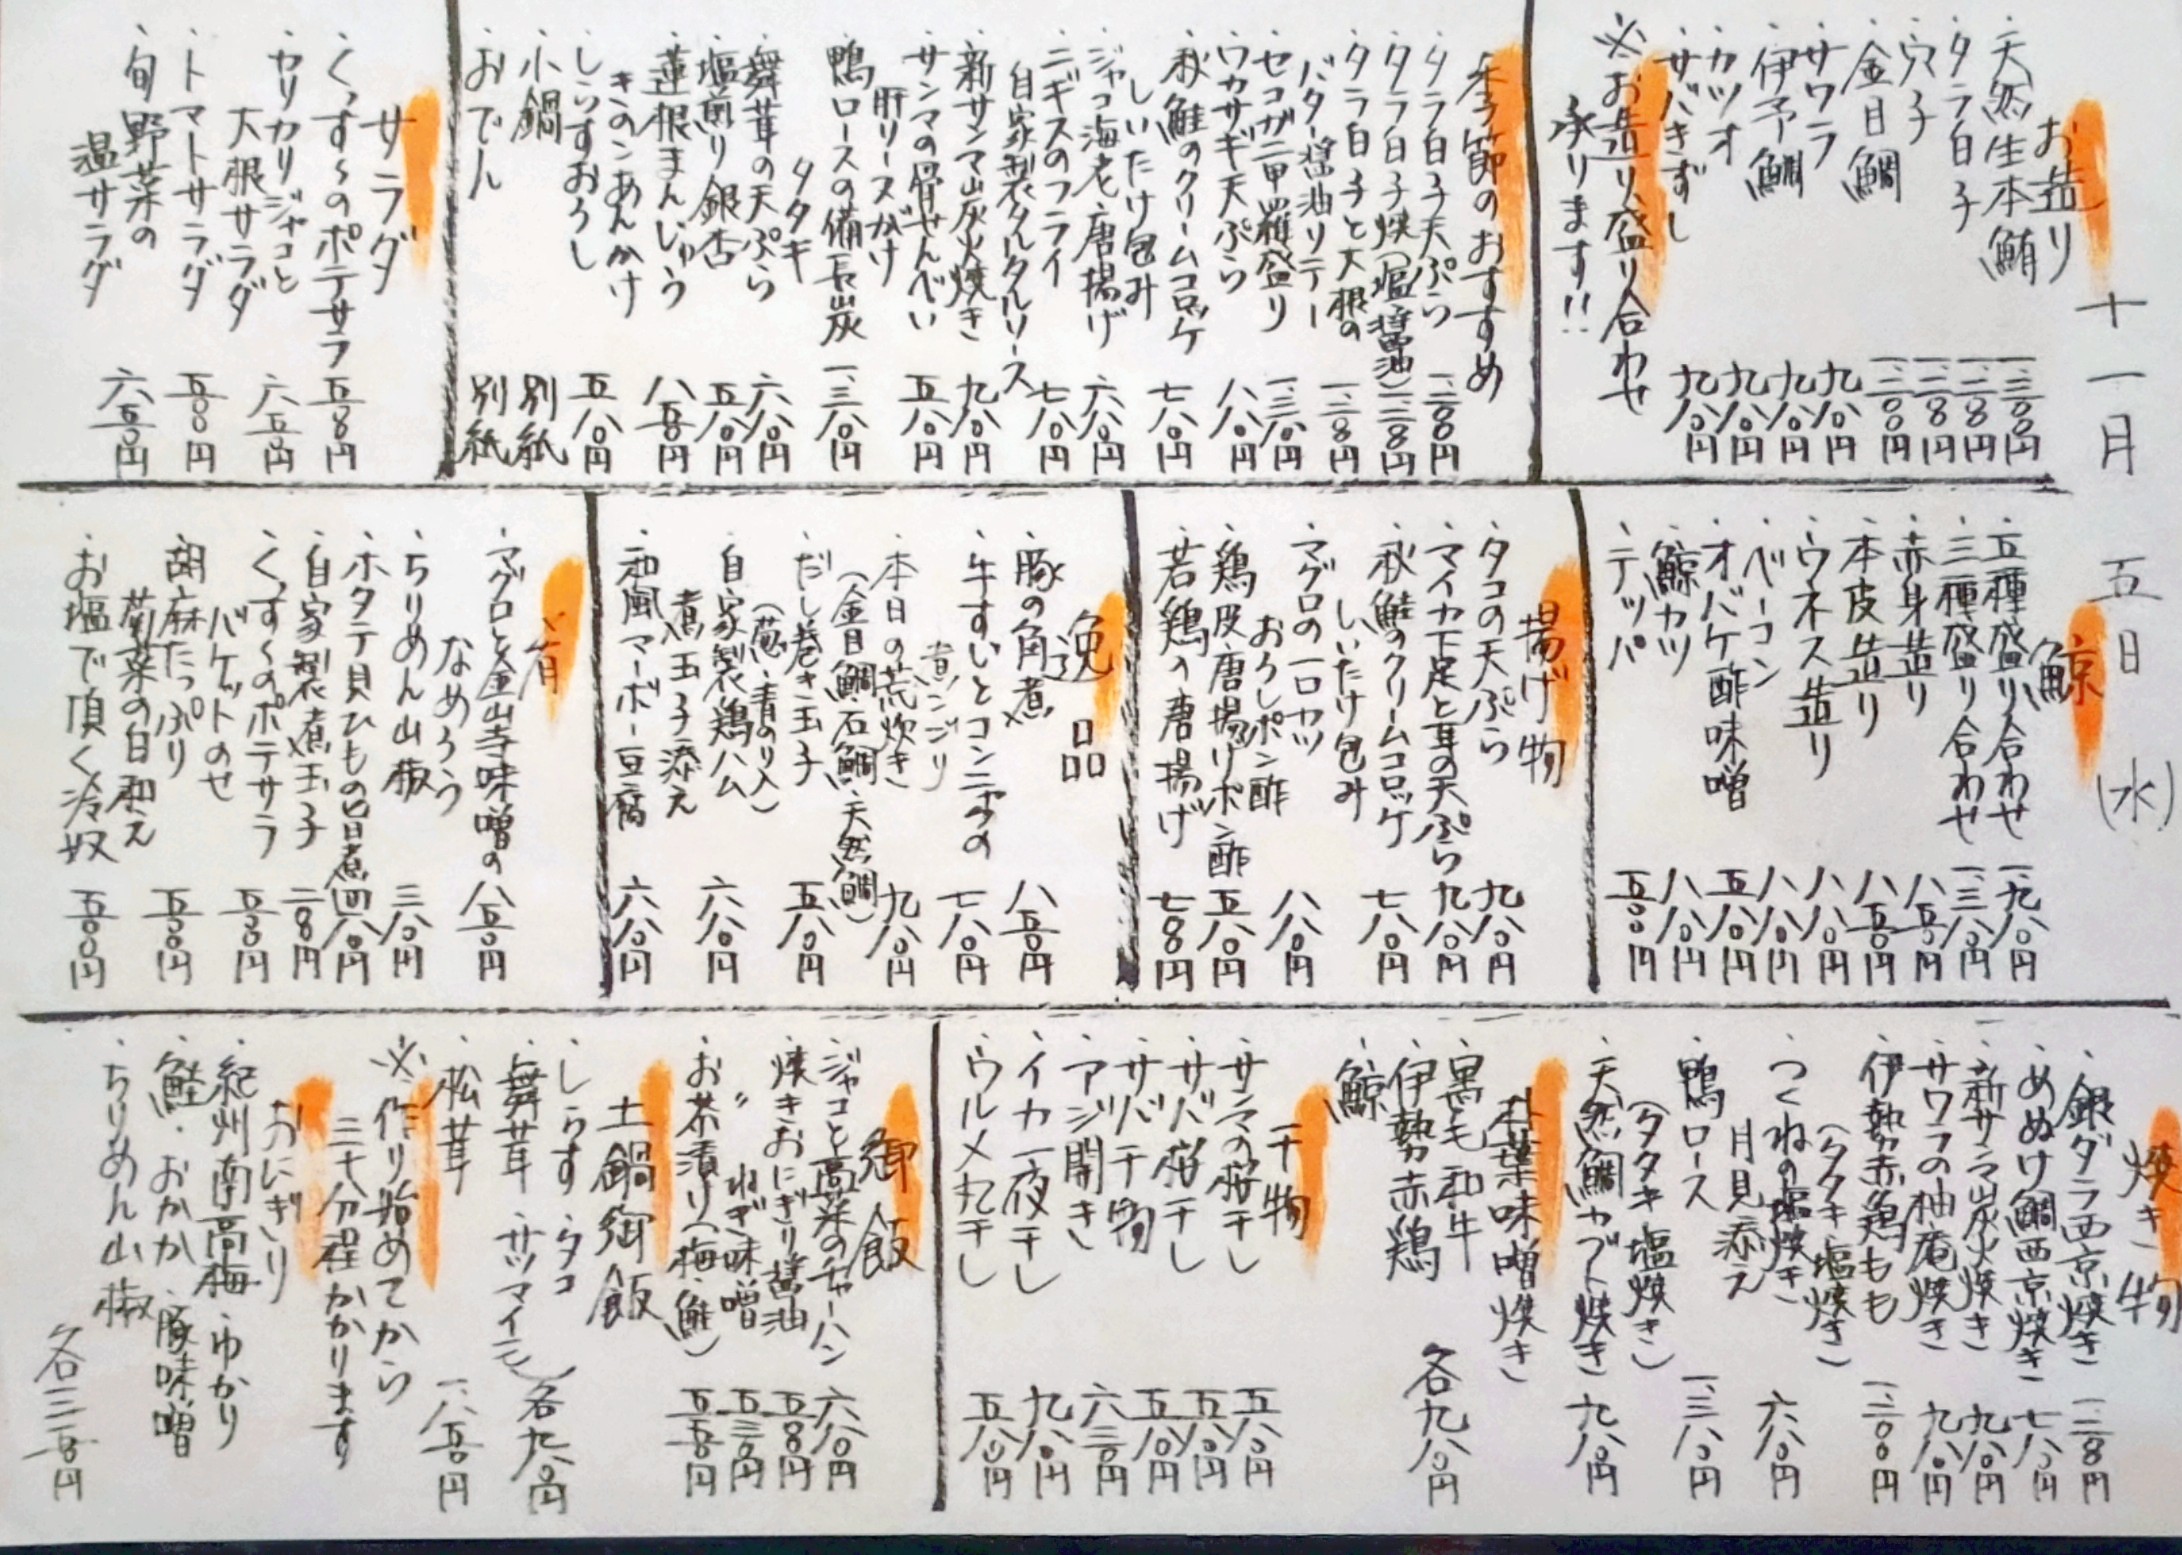 十一月 五日 (水)
お造り
・天然生本鮪 一、三〇〇円
・タラ白子 一、二八〇円
・穴子 一、二八〇円
・金目鯛 一、三〇〇円
・サワラ 九八〇円
・伊予鯛 九八〇円
・カツオ 九八〇円
・サバきずし 九八〇円
※お造り盛り合わせ
承ります!!
季節のおすすめ
・タラ白子天ぷら 一、二八〇円
・タラ白子焼(塩、醤油) 一、二八〇円
・タラ白子と大根の
バター醤油ソテー 一、二八〇円
・セコガニ甲羅盛り 一、三八〇円
・ワカサギ天ぷら 八八〇円
・秋鮭のクリームコロッケ
しいたけ包み 七八〇円
・ジャコ海老唐揚げ 六八〇円
・ニギスのフライ
自家製タルタルソース 七八〇円
・新サンマ炭火焼き 九八〇円
・サンマの骨せんべい
肝ソースがけ 五八〇円
・鴨ロースの備長炭
タタキ 一、三八〇円
・舞茸の天ぷら 六八〇円
・塩煎り銀杏 五八〇円
・蓮根まんじゅう
きのこあんかけ 八五〇円
・しらすおろし 五八〇円
・小鍋 別紙
・おでん 別紙
サラダ
・くっす〜のポテサラ 五五〇円
・カリカリジャコと
大根サラダ 六五〇円
・トマトサラダ 五五〇円
・旬野菜の
温サラダ 六五〇円
鯨
・五種盛り合わせ 一、九八〇円
・三種盛り合わせ 一、三八〇円
・赤身造り 八五〇円
・本皮造り 八五〇円
・ウネス造り 八八〇円
・ベーコン 八八〇円
・オバケ酢味噌 五八〇円
・鯨カツ 八八〇円
・テッパ 五〇〇円
揚げ物
・タコの天ぷら 九八〇円
・マイカ下足と耳の天ぷら 九八〇円
・秋鮭のクリームコロッケ
しいたけ包み 七八〇円
・マグロの一口カツ
おろしポン酢 八八〇円
・鶏皮唐揚げポン酢 五八〇円
・若鶏の唐揚げ 七八〇円
逸品
・豚の角煮 八五〇円
・牛すじとコンニャクの
煮こごり 七八〇円
・本日の荒炊き
(金目鯛、石鯛、天然鯛) 九八〇円
・だし巻き玉子
(葱・青のり入) 五八〇円
・自家製鶏ハム
煮玉子添え 六八〇円
・和風マーボー豆腐 六八〇円
肴
・マグロと金山寺味噌の
なめろう 八五〇円
・ちりめん山椒 三八〇円
・ホタテ貝ひもの旨煮 四八〇円
・自家製煮玉子 二八〇円
・くっす〜のポテサラ
バケットのせ 五五〇円
・胡麻たっぷり
菊菜の白和え 五五〇円
・お塩で頂く冷奴 五〇〇円
焼き物
・銀ダラ西京焼き 一、二八〇円
・めぬけ鯛西京焼き 七八〇円
・新サンマ炭火焼き 九八〇円
・サワラの柚庵焼き 九八〇円
・伊勢赤鶏もも
(タタキ、塩焼き) 一、三〇〇円
・つくねの塩焼き
月見添え 六八〇円
・鴨ロース
(タタキ、塩焼き) 一、三八〇円
・天然鯛カブト焼き 九八〇円
朴葉味噌焼き
・黒毛和牛
・伊勢赤鶏
・鯨
各九八〇円
干物
・サンマの桜干し 五八〇円
・サバ桜干し 五八〇円
・サバ干物 五八〇円
・アジ開き 六三〇円
・イカ一夜干し 九八〇円
・ウルメ丸干し 五八〇円
御飯
・ジャコと高菜のチャーハン 六八〇円
・焼きおにぎり醤油 五五〇円
・〃 ねぎ味噌 五三〇円
・お茶漬け(梅・鮭) 五五〇円
土鍋御飯
・しらす・タコ
・舞茸・サツマイモ 各九八〇円
・松茸 一、八五〇円
※作り始めてから
三十分程かかります
おにぎり
・紀州南高梅・ゆかり
・鮭・おかか・豚味噌
・ちりめん山椒
各三五〇円